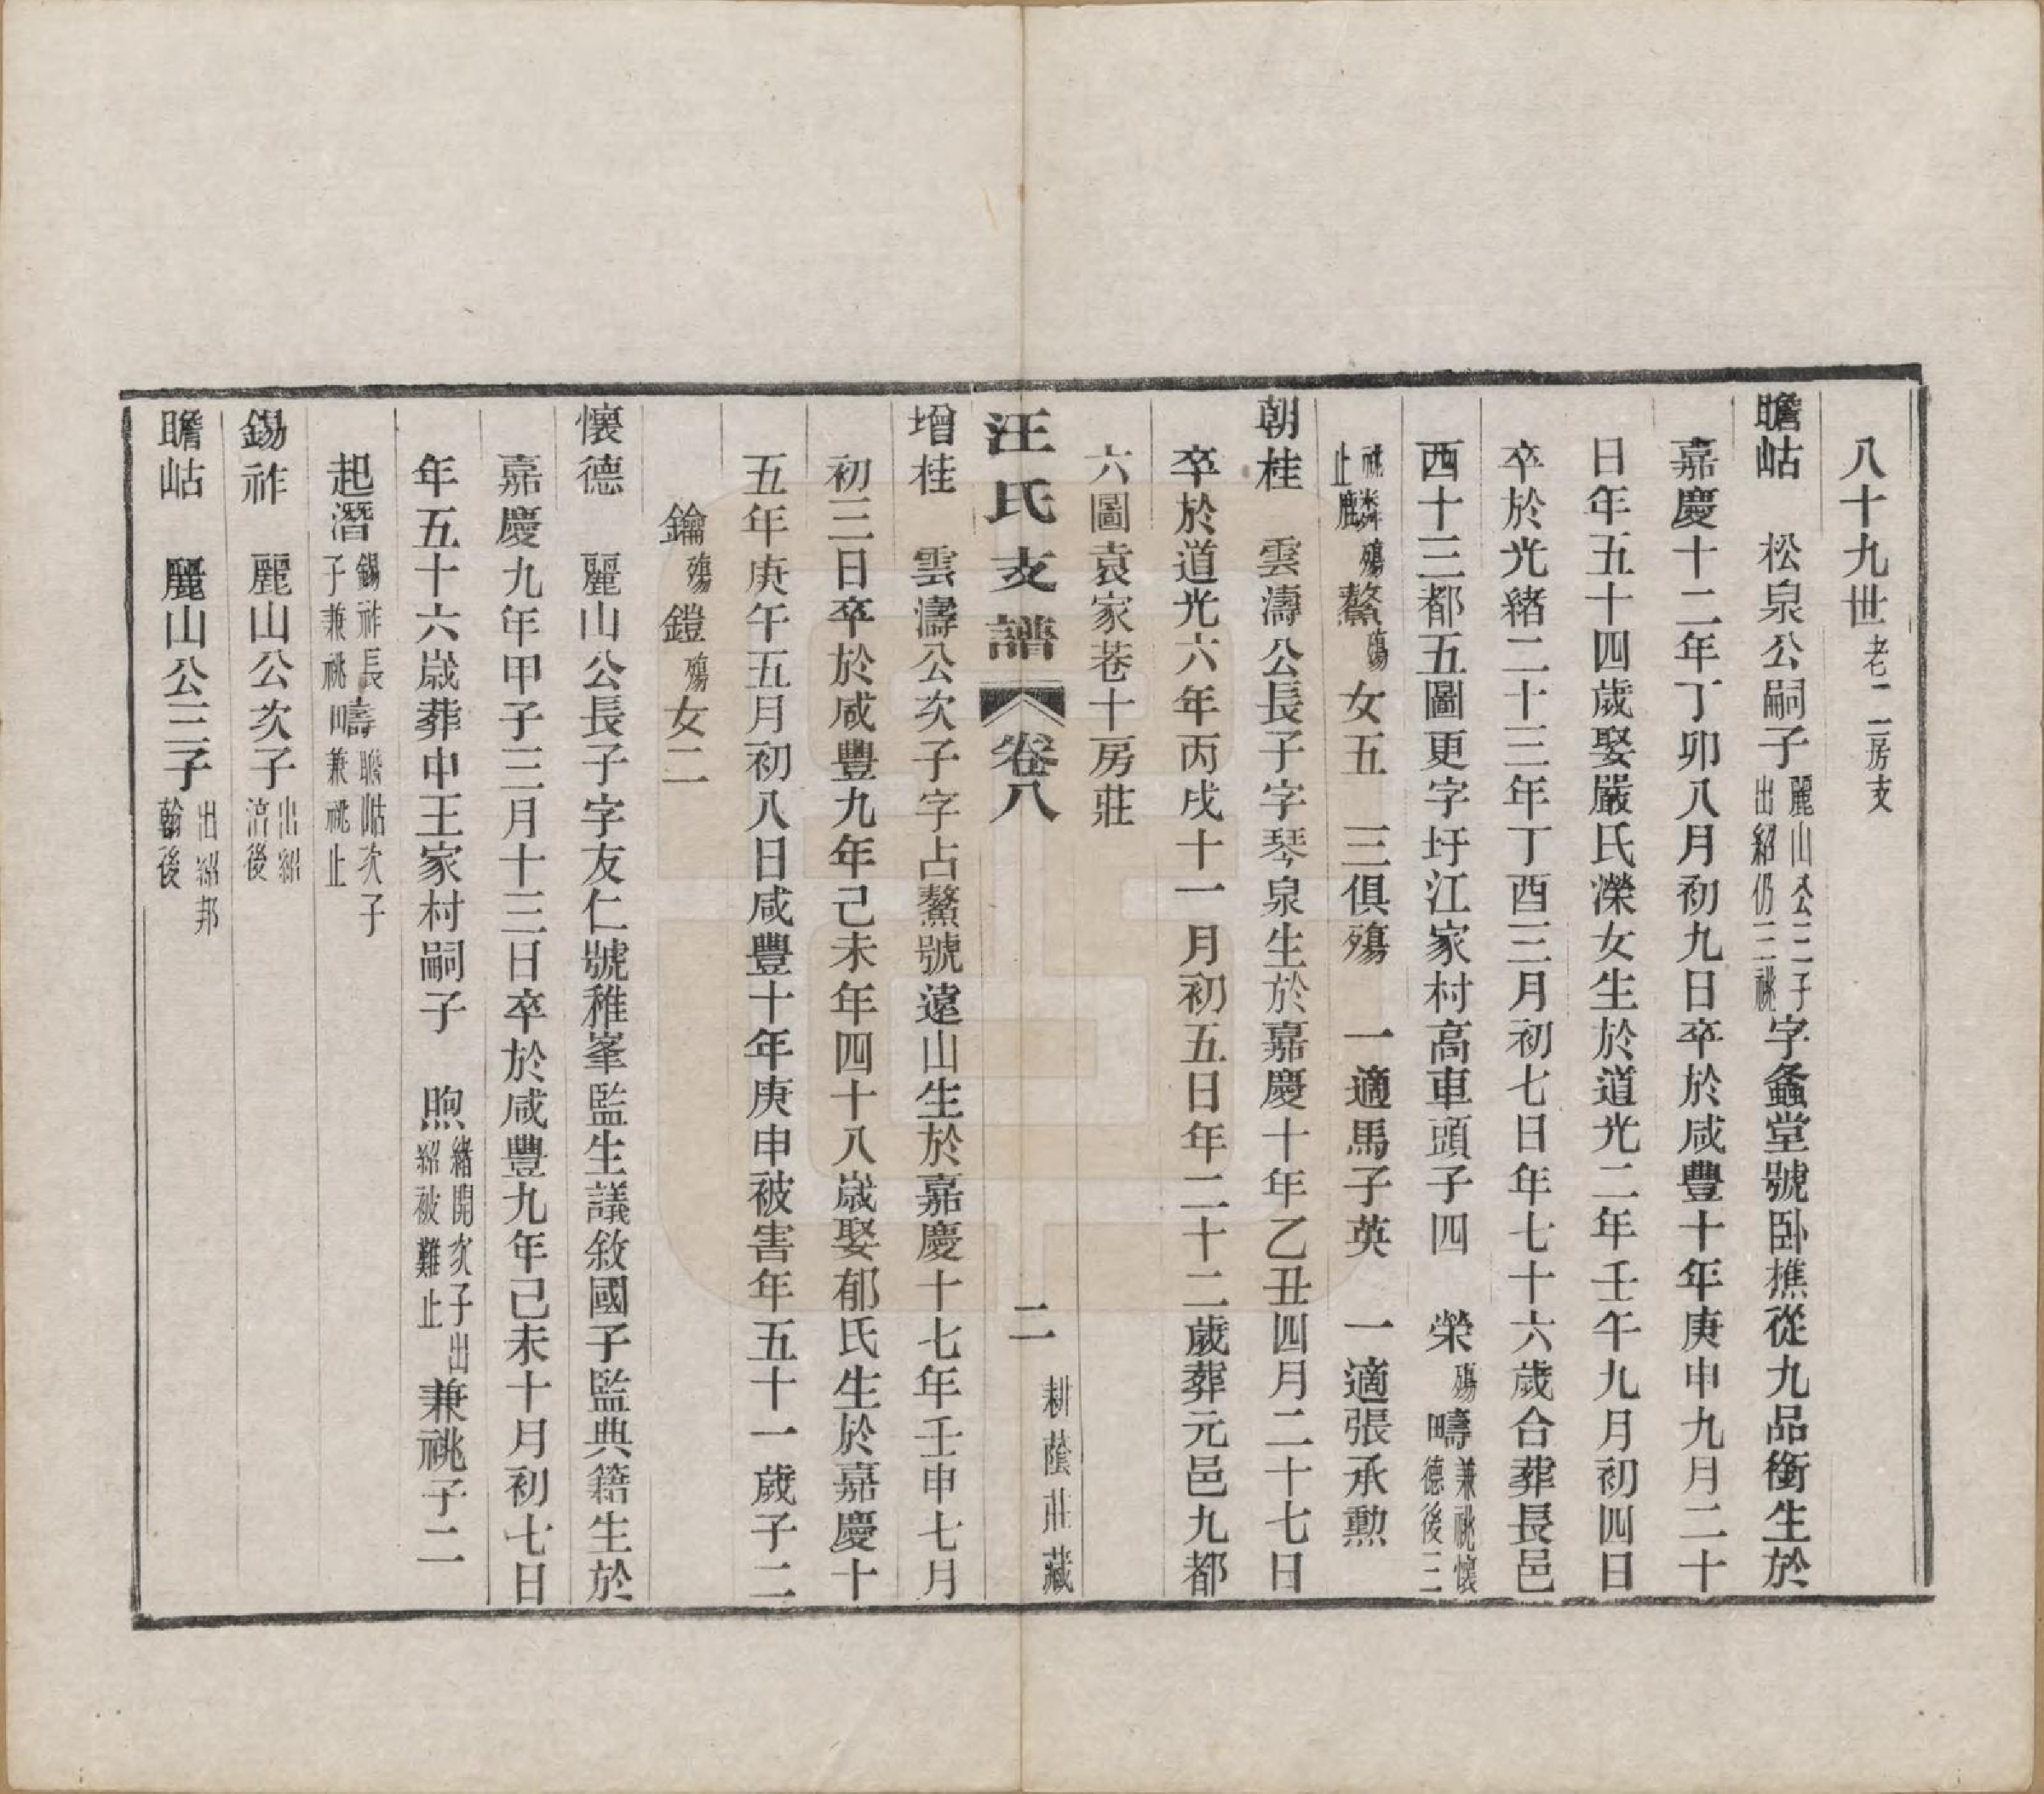 八十九世老二房支
瞻岵　松泉公嗣子麗山公三子出紹仍三祧字螽堂號卧樵從九品銜生於
嘉慶十二年丁卯八月初九日卒於咸豐十年庚申九月二十
日年五十四歲娶嚴氏濚女生於道光二年壬午九月初四日
卒於光緒二十三年丁酉三月初七日年七十六歲合葬長邑
西十三都五圖更字圩江家村高車頭子四　榮殤疇兼祧懷德後三
祧止麟麟殤鰲殤女五　三俱殤　一適馬子英　一適張承勲
朝桂　雲濤公長子字琴泉生於嘉慶十年乙丑四月二十七日
卒於道光六年丙戌十一月初五日年二十二歲葬元邑九都
六圖袁家巷十房莊
汪氏支譜　卷八　二　耕蔭莊藏
增桂　雲濤公次子字占鰲號遠山生於嘉慶十七年壬申七月
初三日卒於咸豐九年己未年四十八歲娶郁氏生於嘉慶十
五年庚午五月初八日咸豐十年庚申被害年五十一歲子二
鑰殤鎧殤女二
懷德　麗山公長子字友仁號稚峯監生議敘國子監典籍生於
嘉慶九年甲子三月十三日卒於咸豐九年己未十月初七日
年五十六歲葬中王家村嗣子　煦緒開次子出紹被難止兼祧子二
起潛錫祚長子兼祧疇瞻岵次子兼祧止
錫祚　麗山公次子出紹涪後
瞻岵　麗山公三子出紹邦翰後